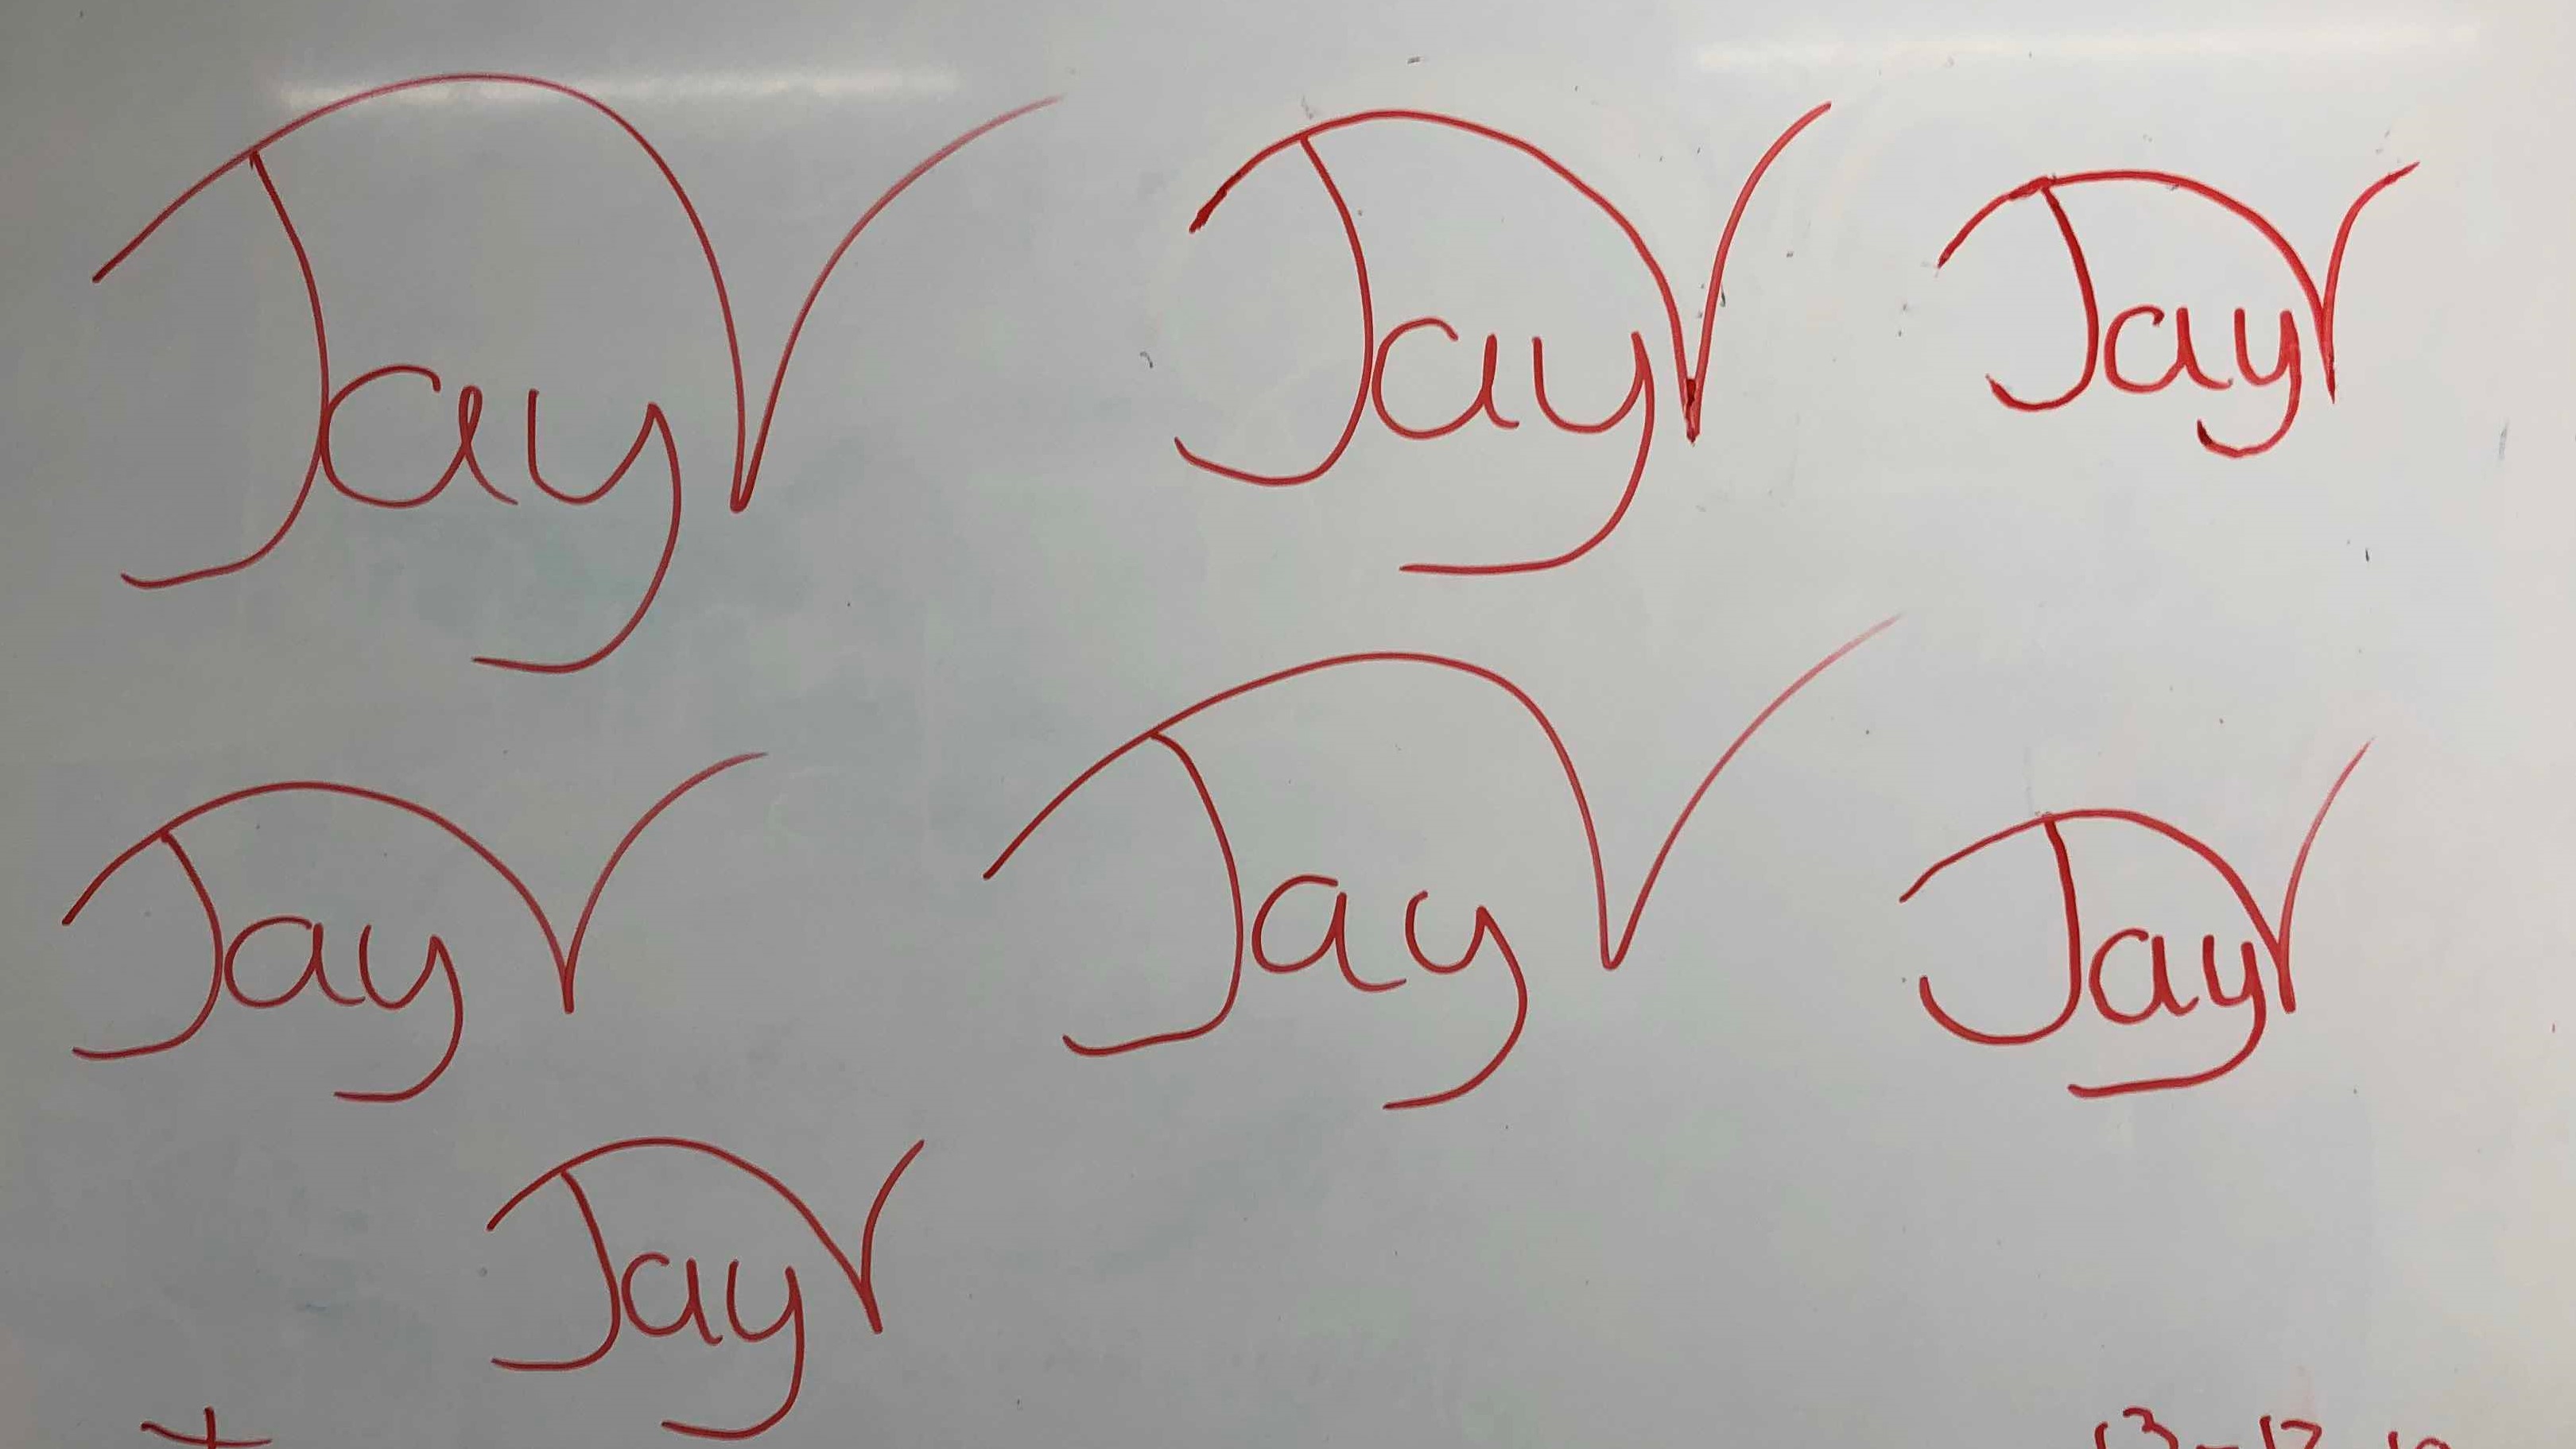 Jay V Jay V Jay V
Jay V Jay V Jay V
Jay V